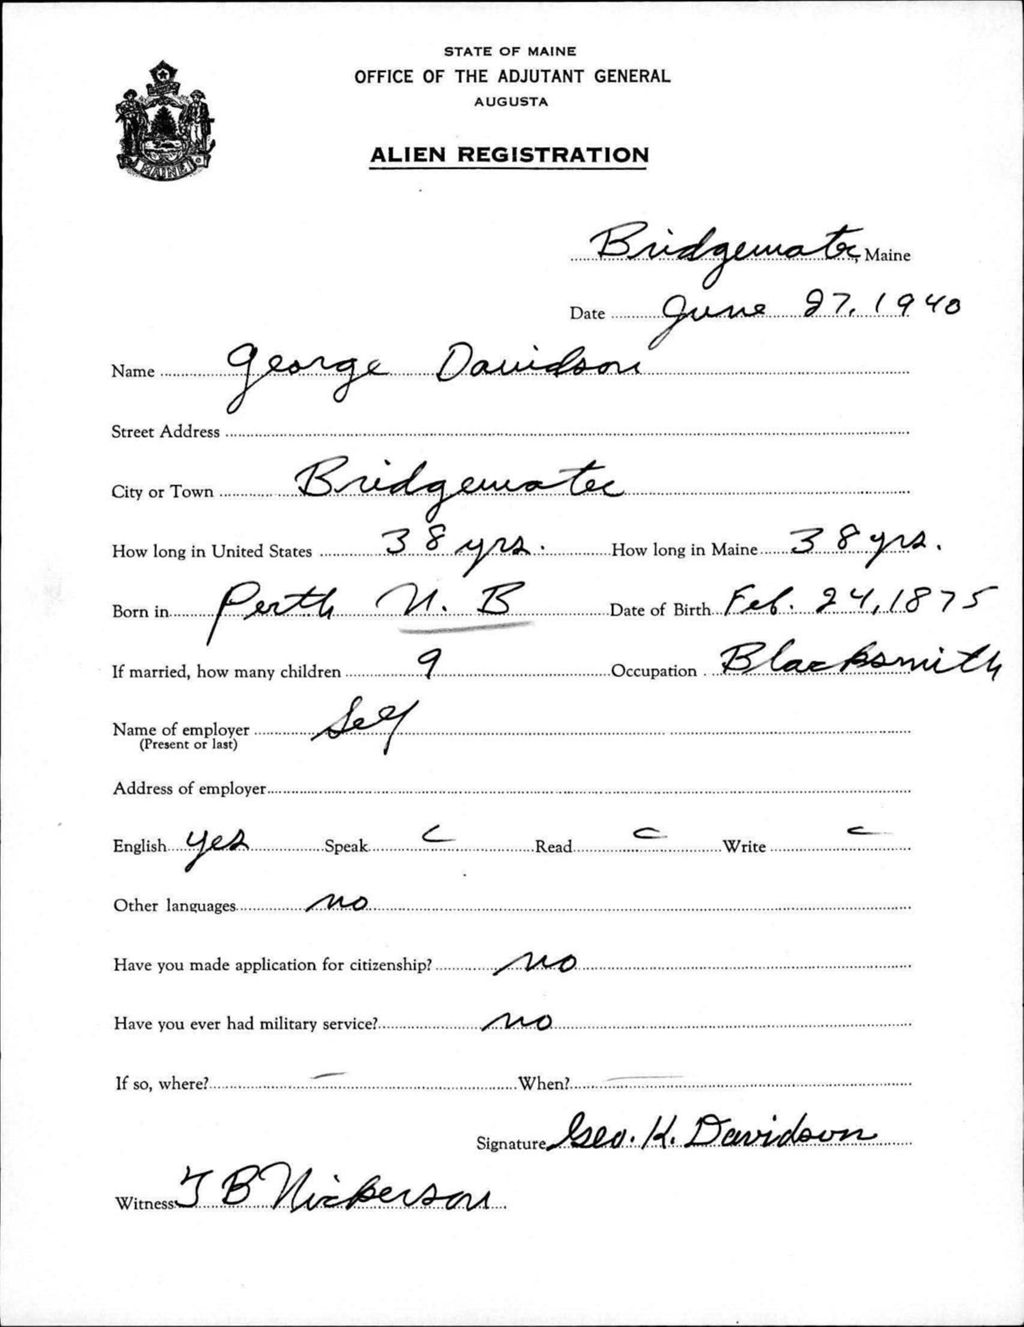 STATE OF MAINE
OFFICE OF THE ADJUTANT GENERAL
AUGUSTA
ALIEN REGISTRATION
MAINE
Bridgewater, Maine
Date June 27, 1940
Name George Davidson
Street Address
City or Town Bridgewater
How long in United States 38 yrs. How long in Maine 38 yrs.
Born in Perth N. B Date of Birth Feb. 24, 1875
If married, how many children 9 Occupation Blacksmith
Name of employer Self
(Present or last)
Address of employer
English yes Speak Read Write
Other languages no
Have you made application for citizenship? no
Have you ever had military service? no
If so, where? — When? —
Signature Geo. H. Davidson
Witness B Nickerson